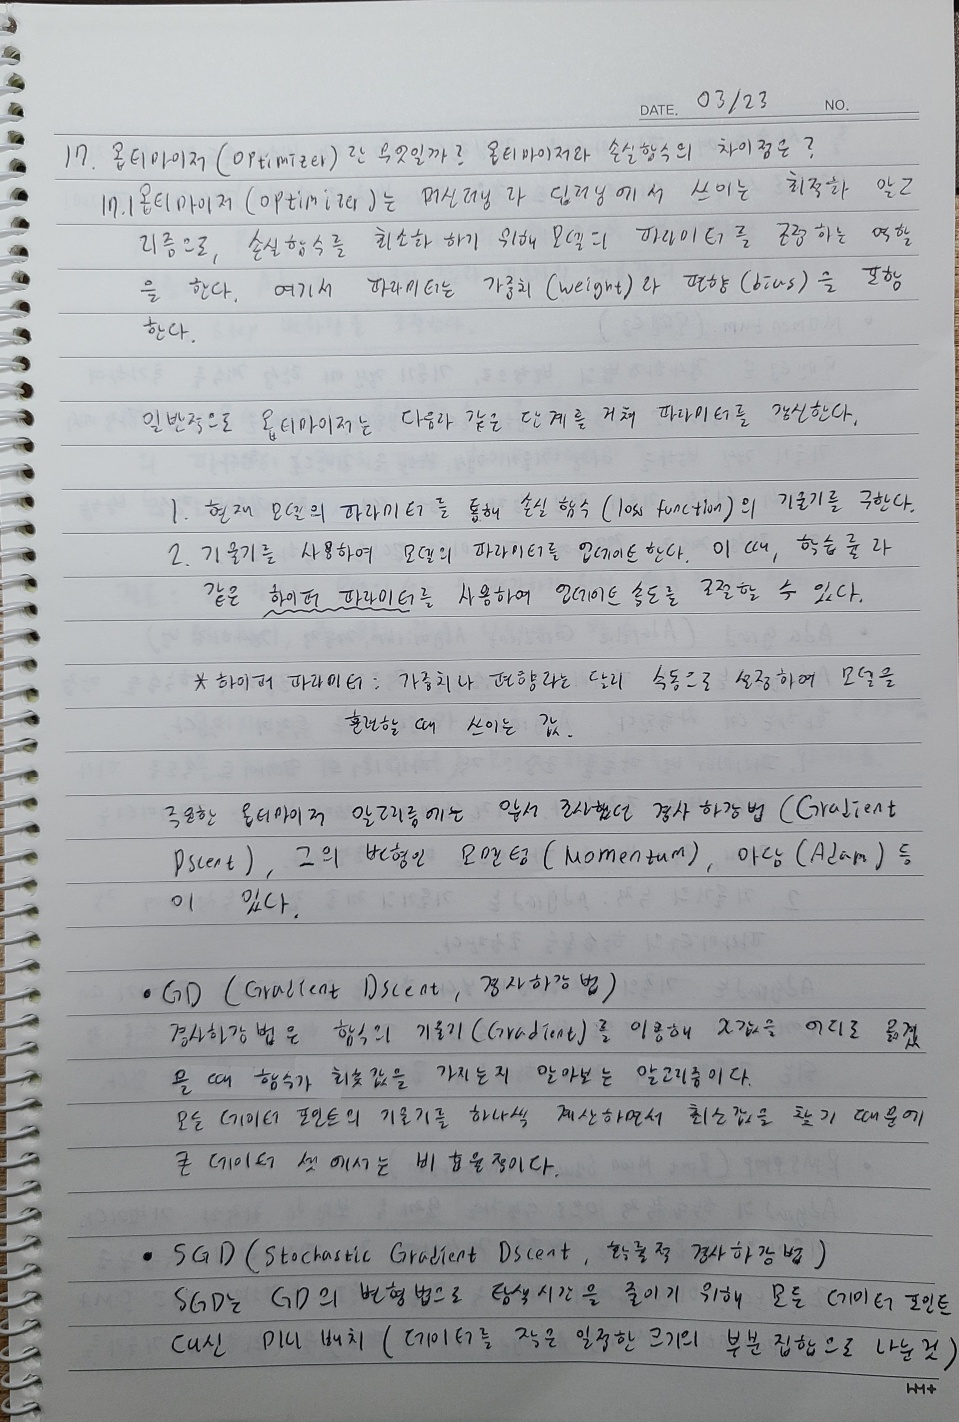 DATE. 03/23 NO.
17. 옵티마이저(optimizer)란 무엇일까? 옵티마이저와 손실함수의 차이점은?
17.1 옵티마이저(optimizer)는 머신러닝과 딥러닝에서 쓰이는 최적화 알고
리즘으로, 손실함수를 최소화 하기 위해 모델의 파라미터를 조정하는 역할
을 한다. 여기서 파라미터는 가중치(weight)와 편향(bias)을 포함
한다.
일반적으로 옵티마이저는 다음과 같은 단계를 거쳐 파라미터를 갱신한다.
1. 현재 모델의 파라미터를 통해 손실 함수(loss function)의 기울기를 구한다.
2. 기울기를 사용하여 모델의 파라미터를 업데이트한다. 이 때, 학습률과
같은 하이퍼 파라미터를 사용하여 업데이트 속도를 조절할 수 있다.
* 하이퍼 파라미터 : 가중치나 편향과는 달리 수동으로 설정하여 모델을
훈련할 때 쓰이는 값.
주요한 옵티마이저 알고리즘에는 앞서 조사했던 경사 하강법(Gradient
Dscent), 그의 변형인 모멘텀(Momentum), 아담(Adam) 등
이 있다.
• GD (Gradient Dscent, 경사하강법)
경사하강법은 함수의 기울기(Gradient)를 이용해 x값을 어디로 옮겼
을 때 함수가 최솟값을 가지는지 알아보는 알고리즘이다.
모든 데이터 포인트의 기울기를 하나씩 계산하면서 최솟값을 찾기 때문에
큰 데이터 셋에서는 비효율적이다.
• SGD (Stochastic Gradient Dscent, 확률적 경사하강법)
SGD는 GD의 변형법으로 탐색시간을 줄이기 위해 모든 데이터 포인트
대신 미니 배치 (데이터를 작은 일정한 크기의 부분집합으로 나눈 것)